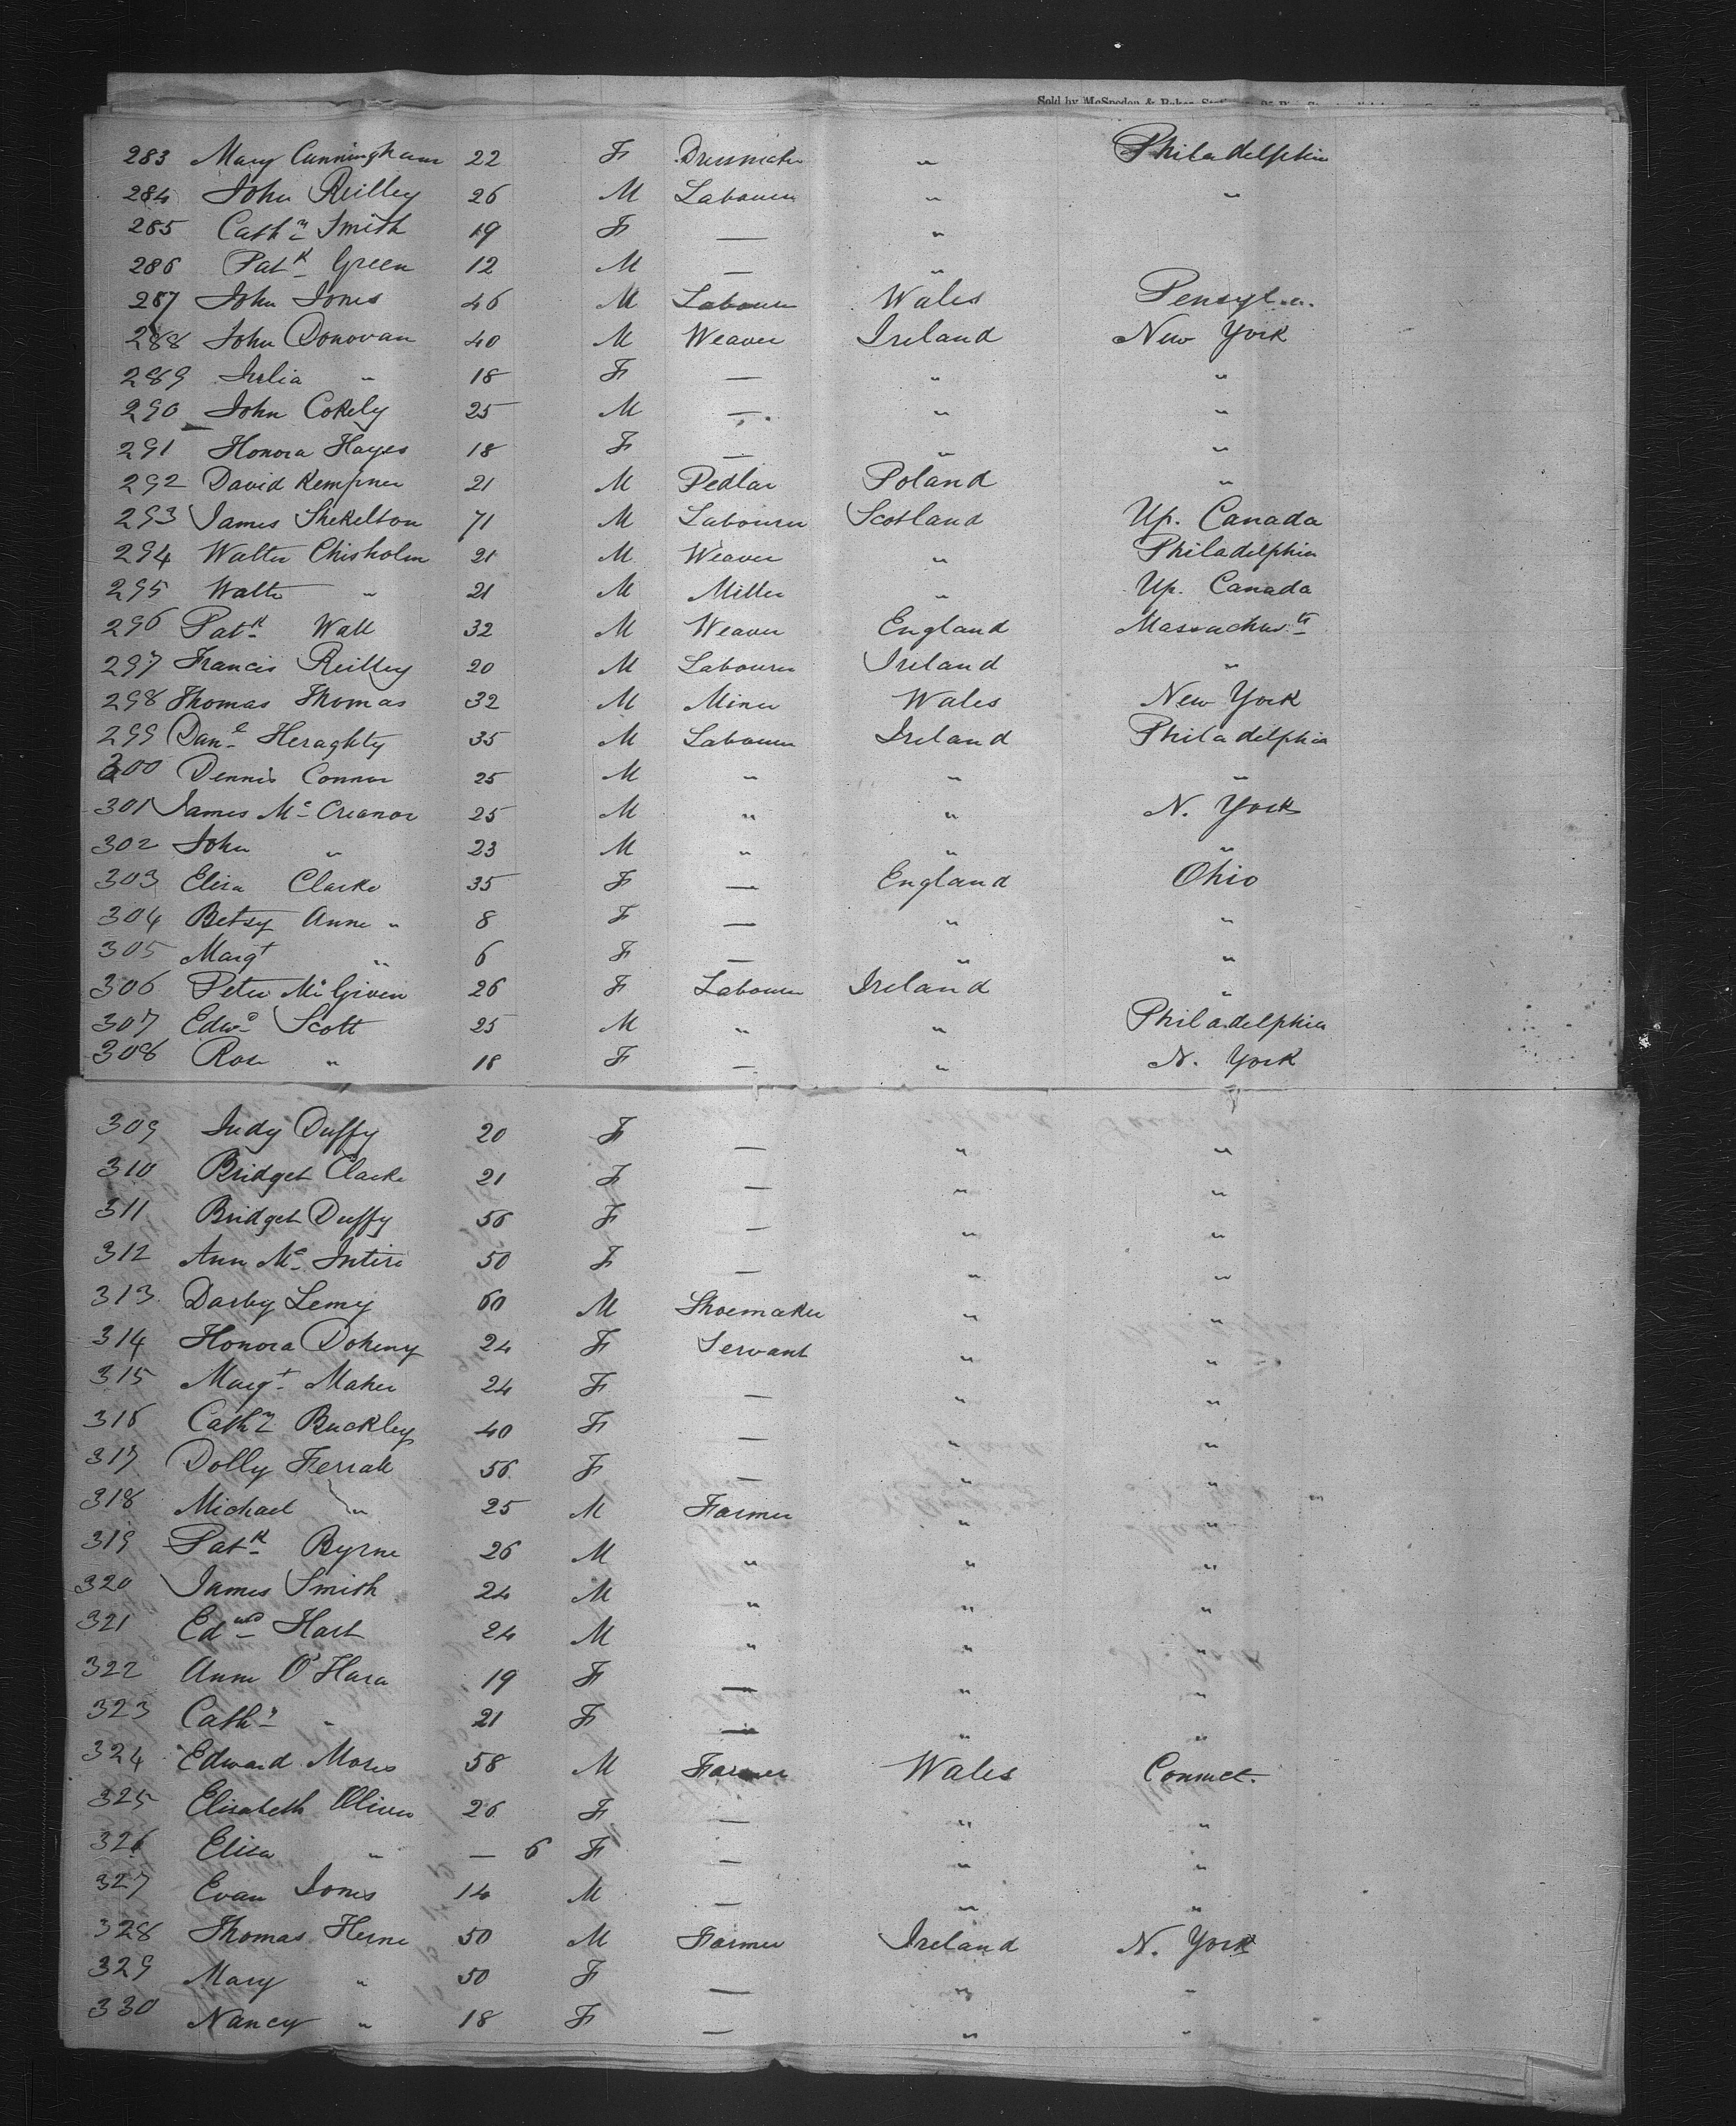 Sold by McSpedon & Baker, Stationers, 25 Pine Street
283 Mary Cunningham 22 F Dressmaker " Philadelphia
284 John Reilley 26 M Labourer " "
285 Cathn Smith 19 F — "
286 Patk Green 12 M — "
287 John Jones 46 M Labourer Wales Pensyl.a.
288 John Donovan 40 M Weaver Ireland New York
289 Julia " 18 F — " "
290 John Cokely 25 M — " "
291 Honora Hayes 18 F — " "
292 David Kempner 21 M Pedlar Poland "
293 James Shekelton 71 M Labourer Scotland Up. Canada
294 Walter Chisholm 21 M Weaver " Philadelphia
295 Walter " 21 M Miller " Up. Canada
296 Patk Wall 32 M Weaver England Massachusts
297 Francis Reilley 20 M Labourer Ireland "
298 Thomas Thomas 32 M Miner Wales New York
299 Danl Heraghty 35 M Labourer Ireland Philadelphia
300 Dennis Connor 25 M " " "
301 James Mc Creanor 25 M " " N. York
302 John " 23 M " " "
303 Eliza Clarke 35 F — England Ohio
304 Betsy Anne " 8 F — " "
305 Margt " 6 F — " "
306 Peter McGiven 26 F Labourer Ireland "
307 Edwd Scott 25 M " " Philadelphia
308 Rose " 18 F — " N. York
309 Judy Duffy 20 F — " "
310 Bridget Clarke 21 F — " "
311 Bridget Duffy 56 F — " "
312 Ann Mc Intire 50 F — " "
313 Darby Lemy 60 M Shoemaker " "
314 Honora Doheny 24 F Servant " "
315 Margt Maher 24 F — " "
316 Cathn Buckley 40 F — " "
317 Dolly Ferrall 56 F — " "
318 Michael " 25 M Farmer " "
319 Patk Byrne 26 M " " "
320 James Smith 24 M " " "
321 Edwd Hart 24 M " " "
322 Anne O'Hara 19 F — " "
323 Cathn " 21 F — " "
324 Edward Mores 58 M Farmer Wales Connect.
325 Elizabeth Oliver 26 F — " "
326 Eliza " — 6 F — " "
327 Evan Jones 14 M — " "
328 Thomas Herne 50 M Farmer Ireland N. York
329 Mary " 50 F — " "
330 Nancy " 18 F — " "